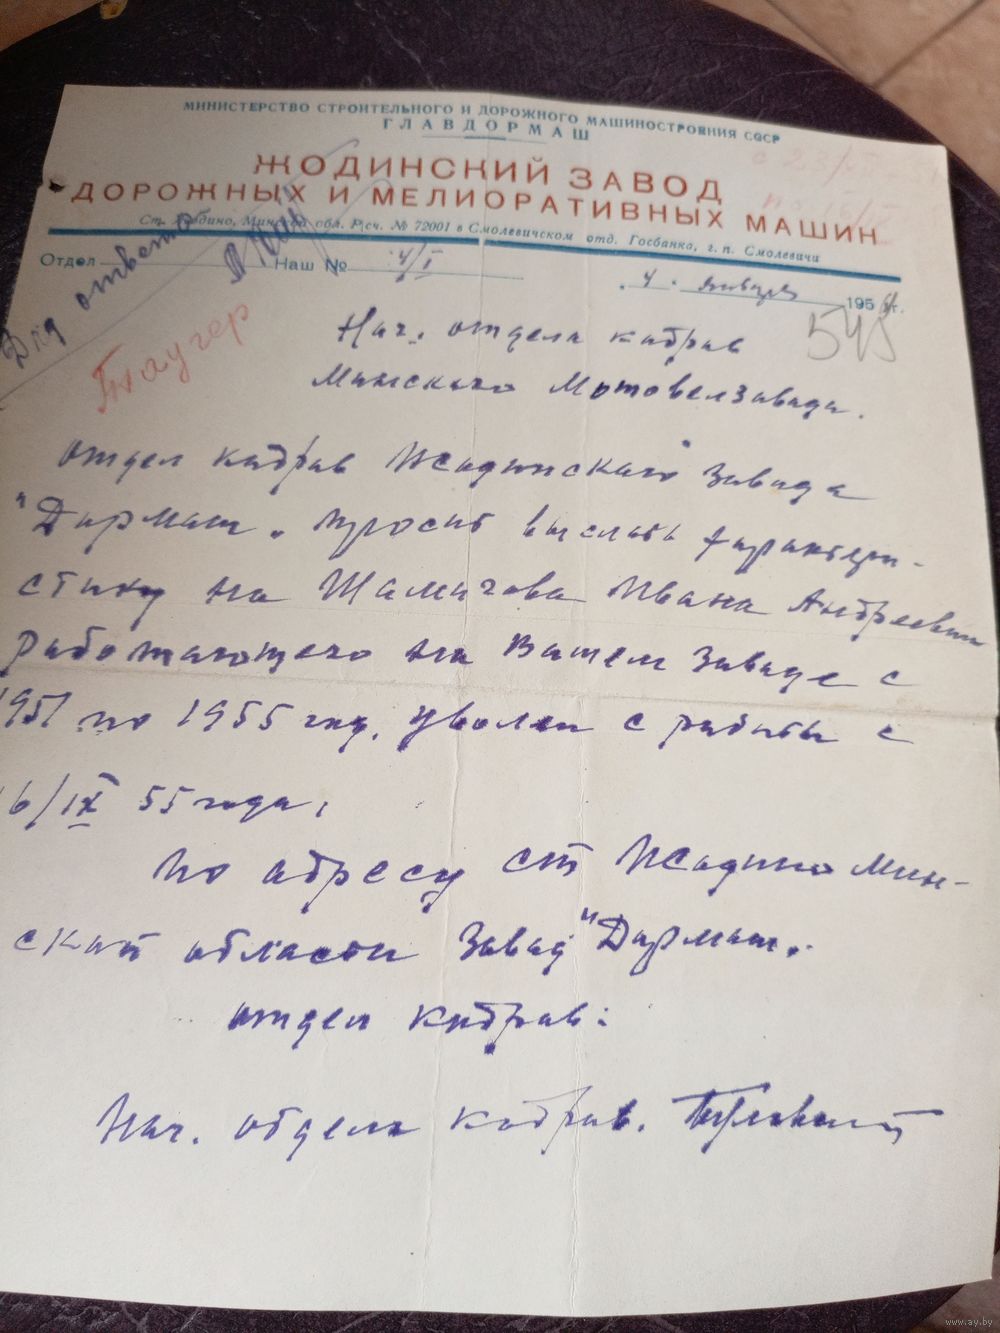 МИНИСТЕРСТВО СТРОИТЕЛЬНОГО И ДОРОЖНОГО МАШИНОСТРОЕНИЯ СССР
ГЛАВДОРМАШ
ЖОДИНСКИЙ ЗАВОД
ДОРОЖНЫХ И МЕЛИОРАТИВНЫХ МАШИН
Ст. Жодино, Минской обл. Р/сч. № 72001 в Смолевичском отд. Госбанка, г. п. Смолевичи
Отдел Наш № 4/I
4 января 195 г.
Для ответа
Таугер
545
Нач. отдела кадров
Минского Мотовелзавода.
отдел кадров Жодинского завода
"Дормаш" просит выслать характери-
стику на Шамичова Ивана Андреевич
работающего на Вашем заводе с
1951 по 1955 год, уволен с работы с
16/IX 55 года.
по адресу ст Жодино Мин-
ской области завод "Дормаш".
отдел кадров:
Нач. отдела кадров.
www.ay.by